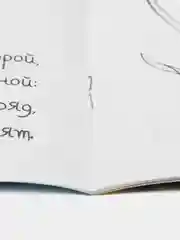 орой,
ной:
ряд,
ят.